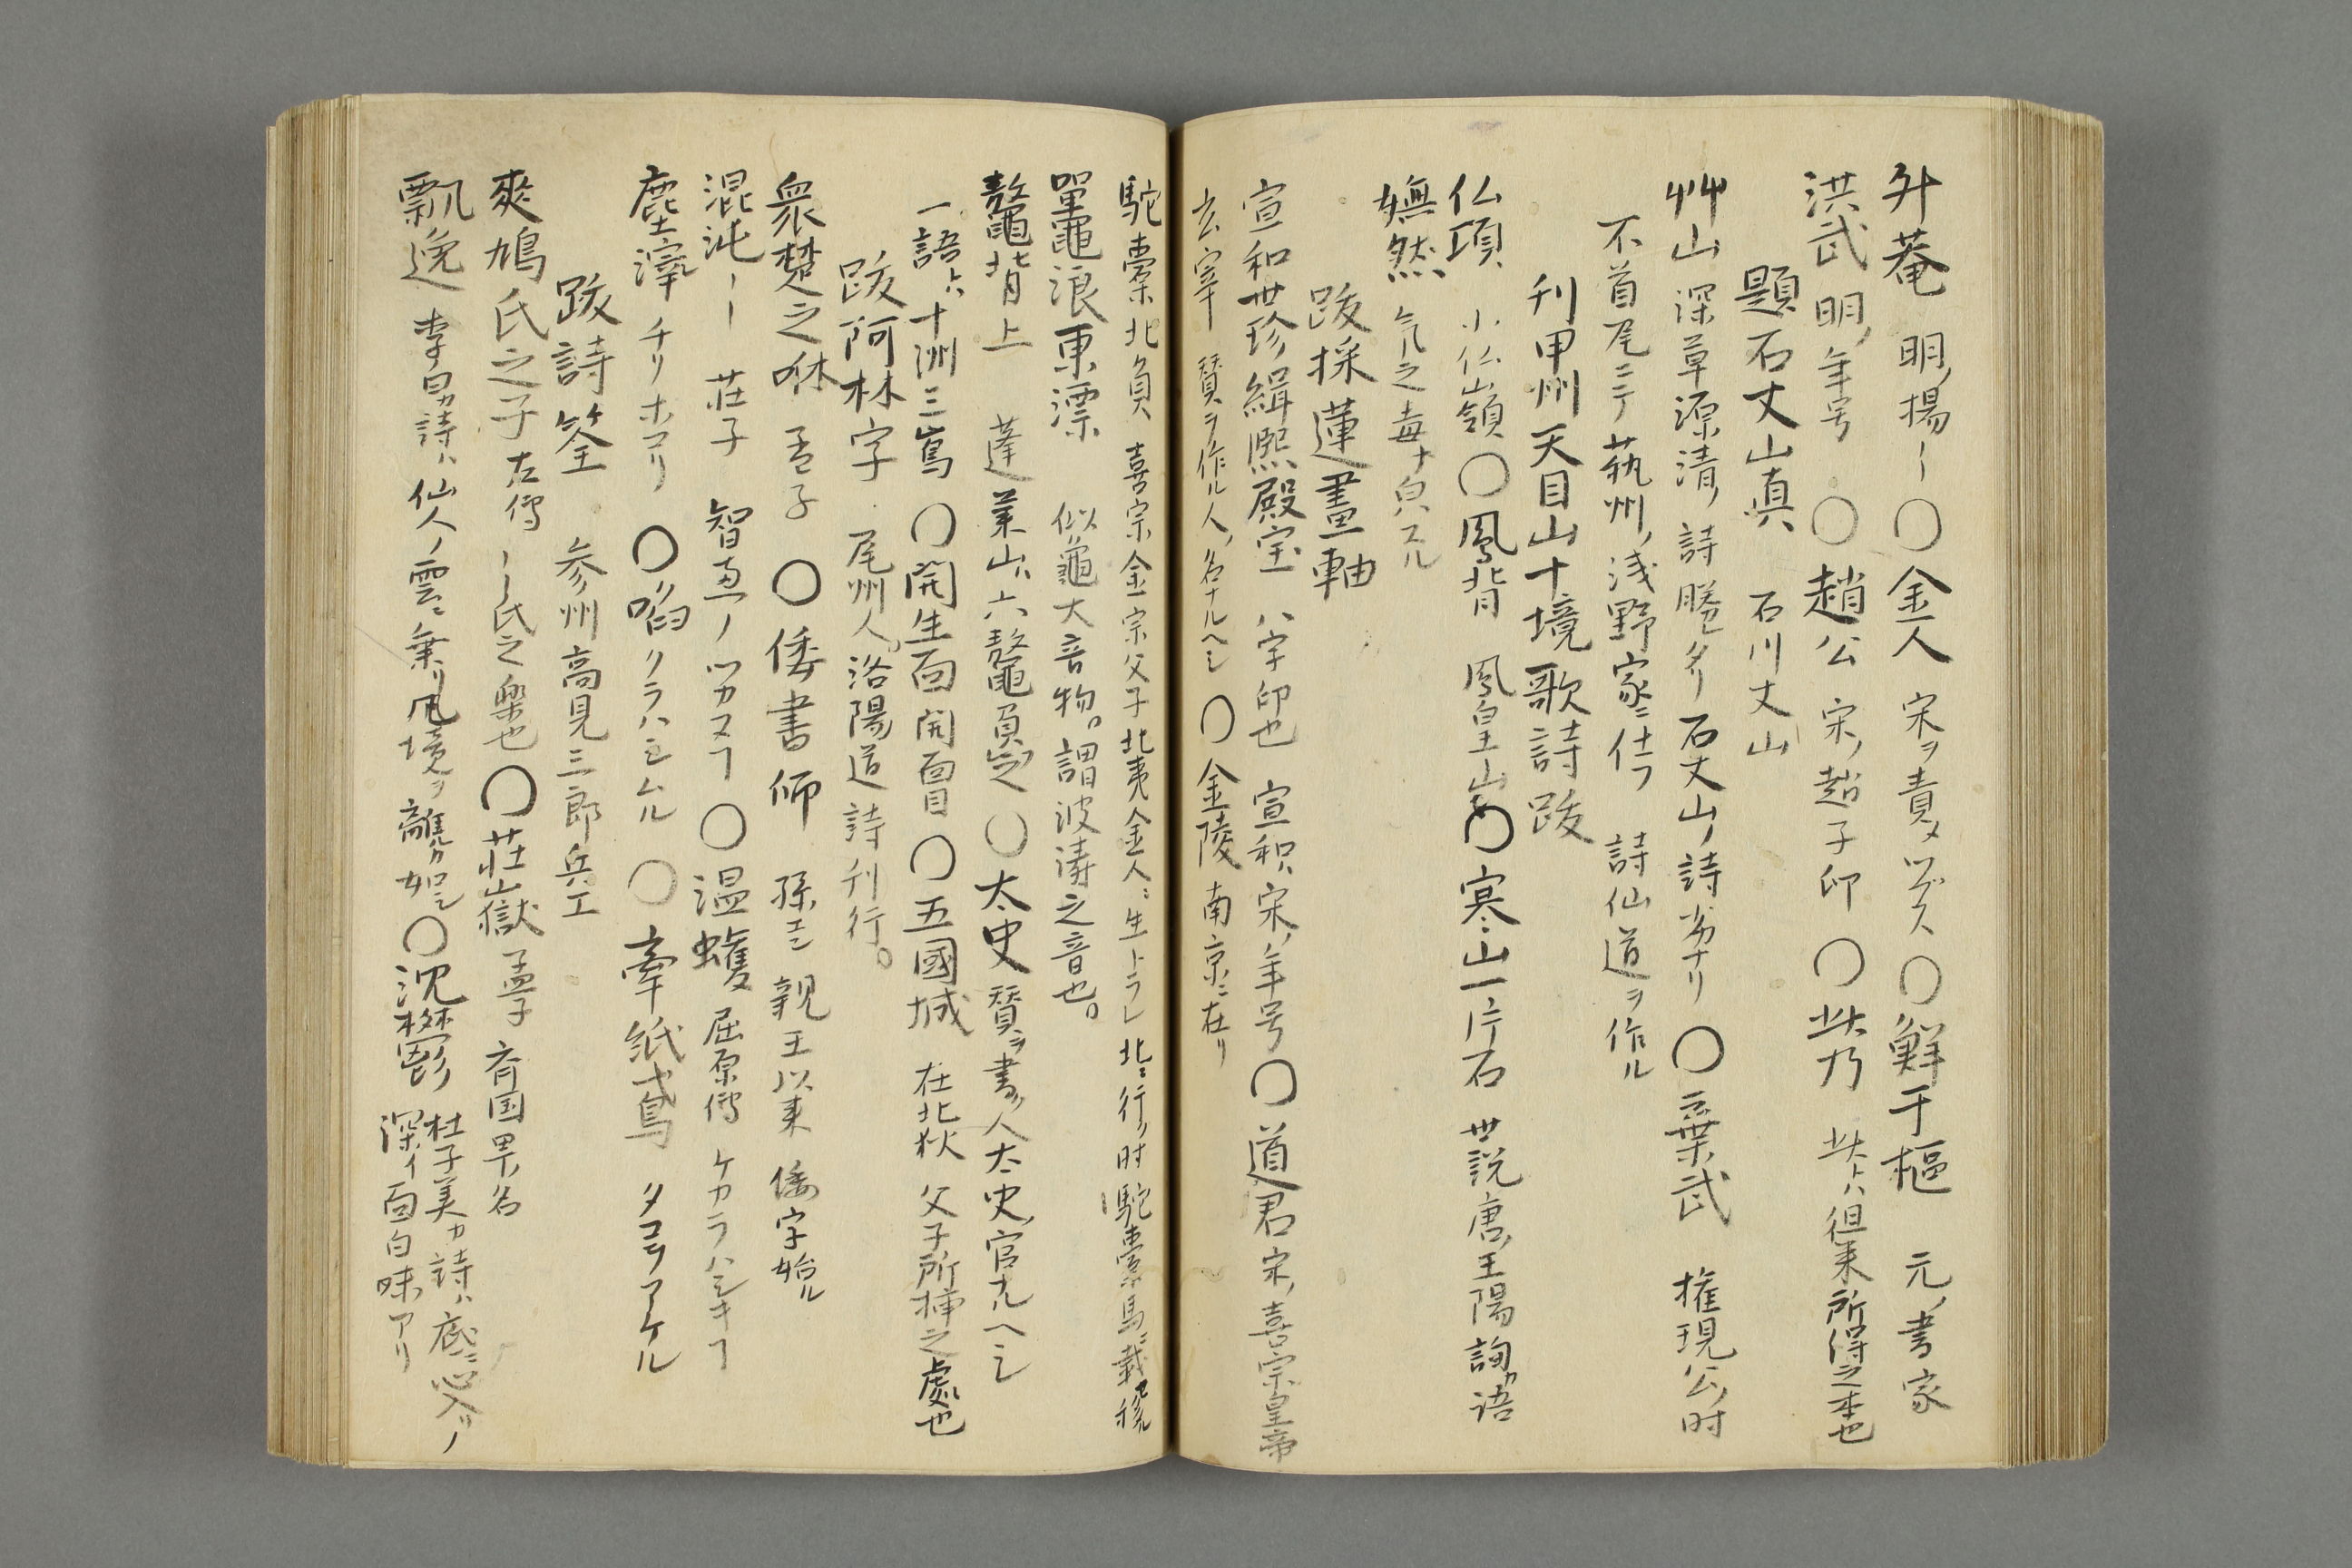 升菴　明ノ揚ー〇金人　宋ヲ責メツブス〇鮮于樞　元ノ書家
洪武　明ノ年号〇趙公　宋ノ趙子卬〇此乃　此トハ徂来所得之本也
題石丈山真　石川丈山
艸山　深草源清ノ詩勝タリ石丈山ノ詩劣ナリ〇棄武　権現公ノ时
不首尾ニテ執州ノ浅野家ニ仕フ　詩仙道ヲ作ル
刋甲州天目山十境歌詩跋
仏項　小仏嶺〇鳳背　鳳皇山〇寒山一片石　世説唐ノ王陽詢カ語
嫵然　气之毒ナ皃スル
跋採蓮畫軸
宣和世珍緝熈殿宝　八字卬也　宣和ハ宋ノ年号〇道君　宋ノ喜宗皇帝
玄宰　賛ヲ作ル人ノ名ナルヘシ〇金陵　南京ニ在リ
駝橐北負　喜宗金宗父子北夷金人ニ生トラレ北ニ行ノ时駝橐馬ニ載セ
鼍浪東漂　似龜大音物。謂波涛之音也。
鼇背上　蓬莱山ハ六鼇負之〇太史　賛ヲ書ク人太史ノ官ナルヘシ
一語ハ十洲三嶌〇開生面　開面目〇五國城　在北狄　父子所挿之處也
跋阿林字　尾州人。洛陽道詩刋行。
衆楚之咻　孟子〇倭書師　孫王　親王以来　倭字始ル
混沌ーー　荘子　智恵ノツカヌ〇温蠖　屈原傳　ケカラハシキ
塵滓　チリホコリ〇啗　クラハシムル〇牽紙鳶　タコヲアケル
跋詩筌　参州高見三郎兵エ
爽鳩氏之子　左傳ーー氏之樂也〇荘嶽　孟子　斉国里ノ名
飄逸　李白カ詩ハ仙人ノ雲ニ乗リ凡境ヲ離ルカ如シ〇沈欝　杜子美カ詩ハ底ニ心入リノ
深イ面白味アリ